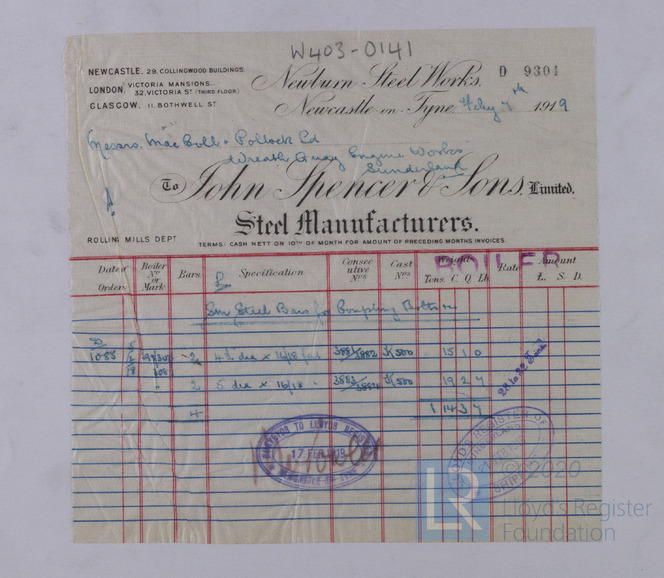 W403-0141
NEWCASTLE, 29, COLLINGWOOD BUILDINGS.
LONDON, VICTORIA MANSIONS.. 32, VICTORIA ST (THIRD FLOOR)
GLASGOW, 11, BOTHWELL ST
Newburn Steel Works,
D 9304
Newcastle-on-Tyne, Feby 7th 1919
Messrs. MacColl & Pollock Ld
Wreath Quay Engine Works
Sunderland
To John Spencer & Sons, Limited.
Steel Manufacturers.
ROLLING MILLS DEPT
TERMS: CASH NETT ON 10TH OF MONTH FOR AMOUNT OF PRECEDING MONTHS INVOICES.
BOILER
Date of Orders Boiler No or Mark Bars Specification Consecutive Nos Cast Nos Weight Tons. C. Q. Lb. Rate Amount £. S. D.
Steel Bars for Coupling Bolts
1085 2 dia x 16/18 3881/3882 500 15 1 0
2 5 dia x 16/18 3883/3884 500 19 2 7
4 1 14 3 7
SURVEYOR TO LLOYDS REGISTER
17 FEB 1919
NEWCASTLE-ON-TYNE
LLOYD'S REGISTER OF
SHIPPING
© 2020
LR
Lloyd's Register
Foundation